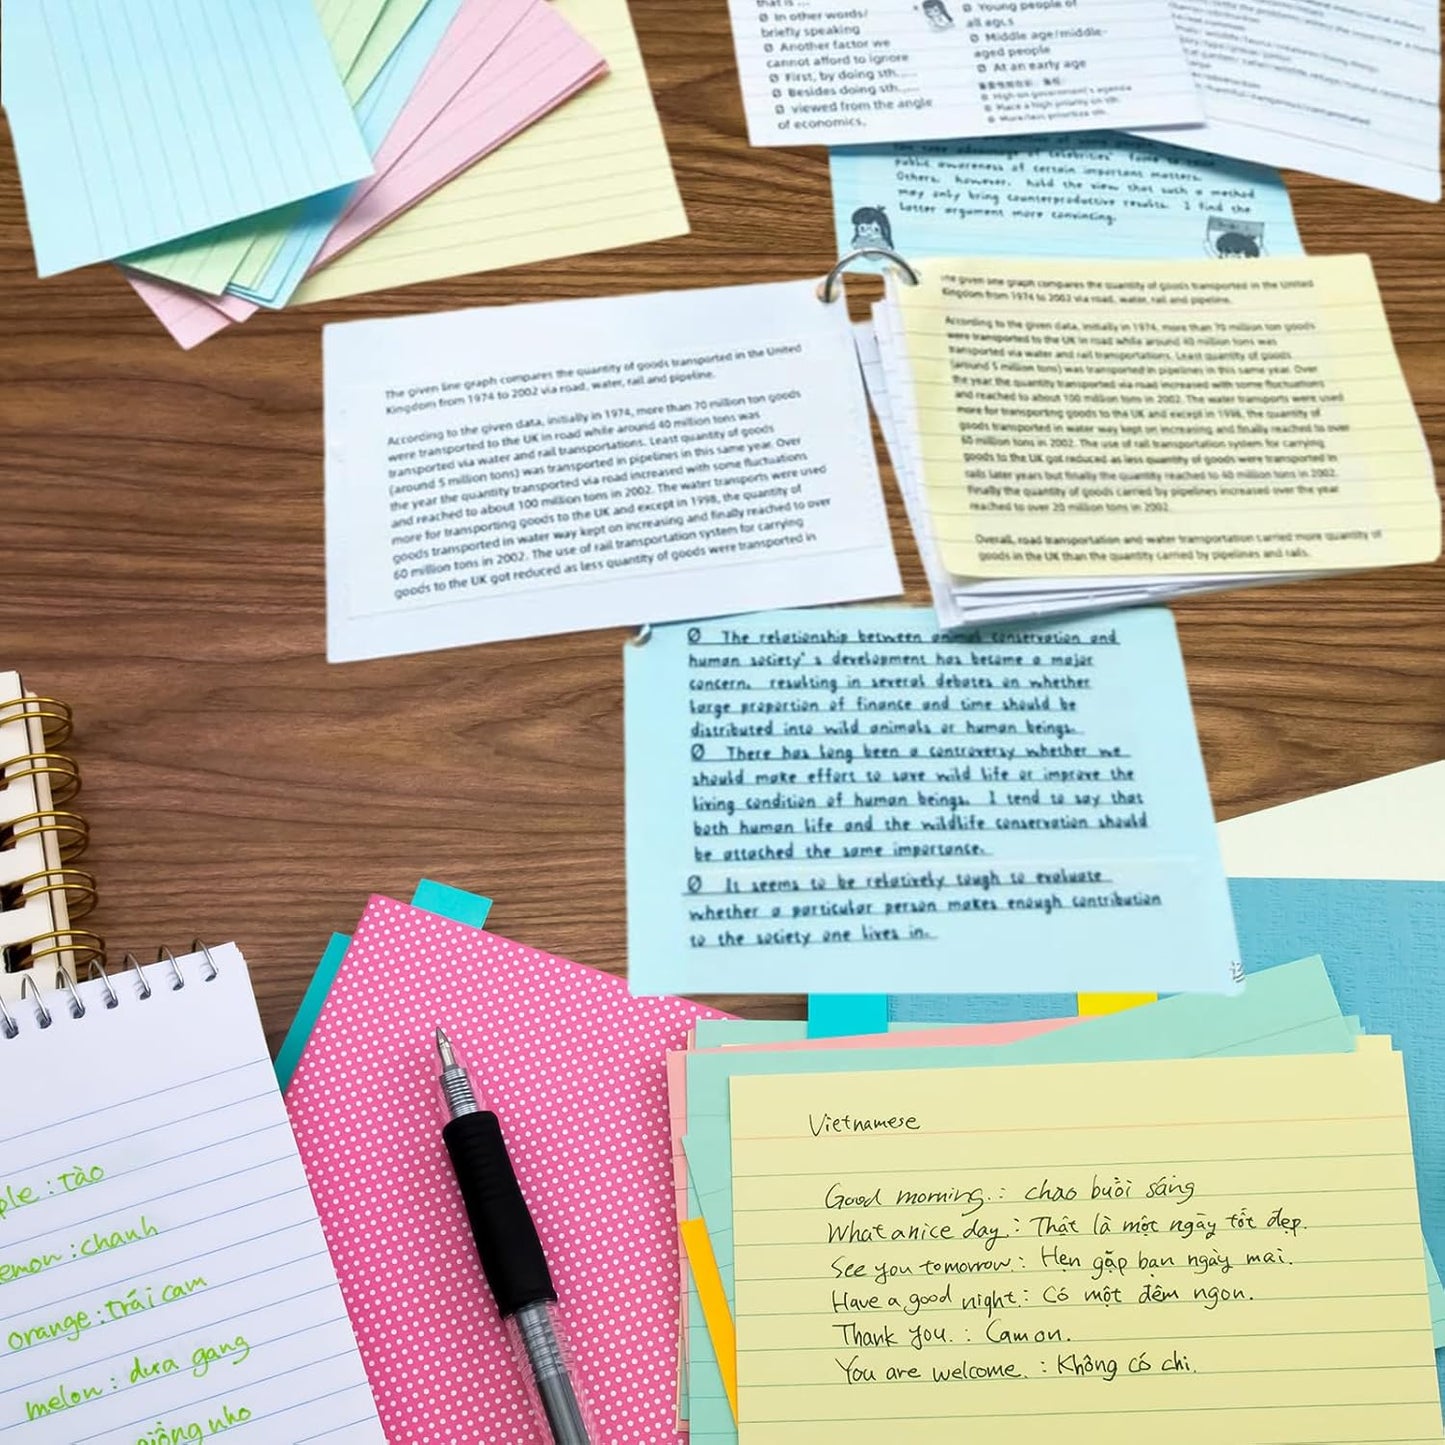 that is ...
Ø In other words/
briefly speaking
Ø Another factor we
cannot afford to ignore
Ø First, by doing sth.....
Ø Besides doing sth.....
Ø viewed from the angle
of economics.
Ø Young people of
all ages
Ø Middle age/middle-
aged people
Ø At an early age
Ø High on government's agenda
Ø Place a high priority on sth.
Ø More/less prioritize sth.
public awareness of certain important matters.
Others, however, hold the view that such a method
may only bring counterproductive results. I find the
latter argument more convincing.
The given line graph compares the quantity of goods transported in the United
Kingdom from 1974 to 2002 via road, water, rail and pipeline.
According to the given data, initially in 1974, more than 70 million ton goods
were transported to the UK in road while around 40 million tons was
transported via water and rail transportations. Least quantity of goods
(around 5 million tons) was transported in pipelines in this same year. Over
the year the quantity transported via road increased with some fluctuations
and reached to about 100 million tons in 2002. The water transports were used
more for transporting goods to the UK and except in 1998, the quantity of
goods transported in water way kept on increasing and finally reached to over
60 million tons in 2002. The use of rail transportation system for carrying
goods to the UK got reduced as less quantity of goods were transported in
the given line graph compares the quantity of goods transported in the United
Kingdom from 1974 to 2002 via road, water, rail and pipeline.
According to the given data, initially in 1974, more than 70 million ton goods
were transported to the UK in road while around 40 million tons was
transported via water and rail transportations. Least quantity of goods
(around 5 million tons) was transported in pipelines in this same year. Over
the year the quantity transported via road increased with some fluctuations
and reached to about 100 million tons in 2002. The water transports were used
more for transporting goods to the UK and except in 1998, the quantity of
goods transported in water way kept on increasing and finally reached to over
60 million tons in 2002. The use of rail transportation system for carrying
goods to the UK got reduced as less quantity of goods were transported in
rails later years but finally the quantity reached to 40 million tons in 2002.
Finally the quantity of goods carried by pipelines increased over the year
reached to over 20 million tons in 2002.
Overall, road transportation and water transportation carried more quantity of
goods in the UK than the quantity carried by pipelines and rails.
Ø The relationship between animal conservation and
human society's development has become a major
concern, resulting in several debates on whether
large proportion of finance and time should be
distributed into wild animals or human beings.
Ø There has long been a controversy whether we
should make effort to save wild life or improve the
living condition of human beings. I tend to say that
both human life and the wildlife conservation should
be attached the same importance.
Ø It seems to be relatively tough to evaluate
whether a particular person makes enough contribution
to the society one lives in.
ple : tào
emon : chanh
orange : trái cam
melon : dưa gang
giồng nho
Vietnamese
Good morning. : chao buổi sáng
What a nice day. : Thật là một ngày tốt đẹp.
See you tomorrow. : Hẹn gặp bạn ngày mai.
Have a good night. : Có một đêm ngon.
Thank you. : Cam on.
You are welcome. : Không có chi.